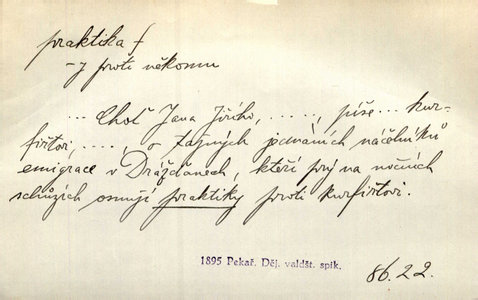 praktika f
-y proti někomu
... Choť Jana Jiřího, ....., píše... kur-
fiřtovi, ...., o tajných jednáních náčelníků
emigrace v Drážďanech, kteří prý na nočních
schůzích osnují praktiky proti kurfiřtovi.
1895 Pekař. Děj. valdšt. spik.
86.22.